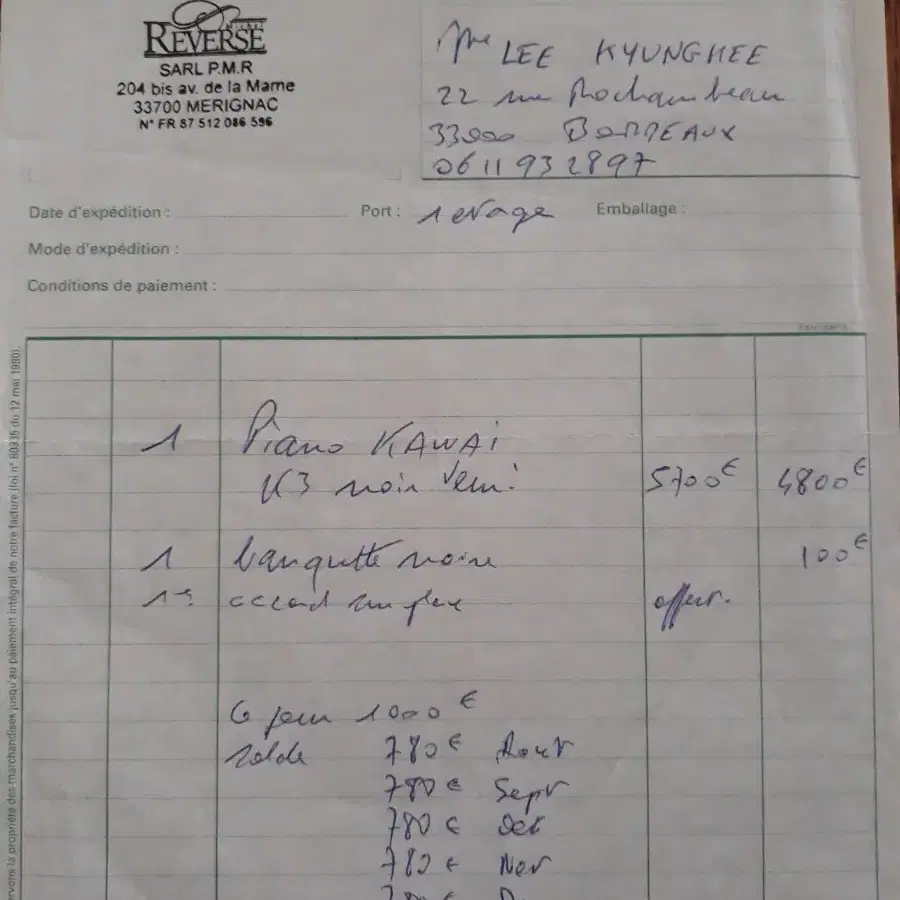 Michel
REVERSE
SARL P.M.R
204 bis av. de la Marne
33700 MERIGNAC
N° FR 87 512 086 596
Mme LEE KYUNGHEE
22 rue Rochambeau
33000 BORDEAUX
06 11 93 28 97
Date d'expédition :
Port : 1 etage
Emballage :
Mode d'expédition :
Conditions de paiement :
1 Piano KAWAi
K3 noir Verni 5700€ 4800€
1 banquette noire 100€
1er accord sur place offert.
Ce jour 1000 €
solde 780 € Aout
780 € Sept
780 € Oct
780 € Nov
780 € D
rvons la propriété des marchandises jusqu'au paiement intégral de notre facture (loi n° 80935 du 12 mai 1980).